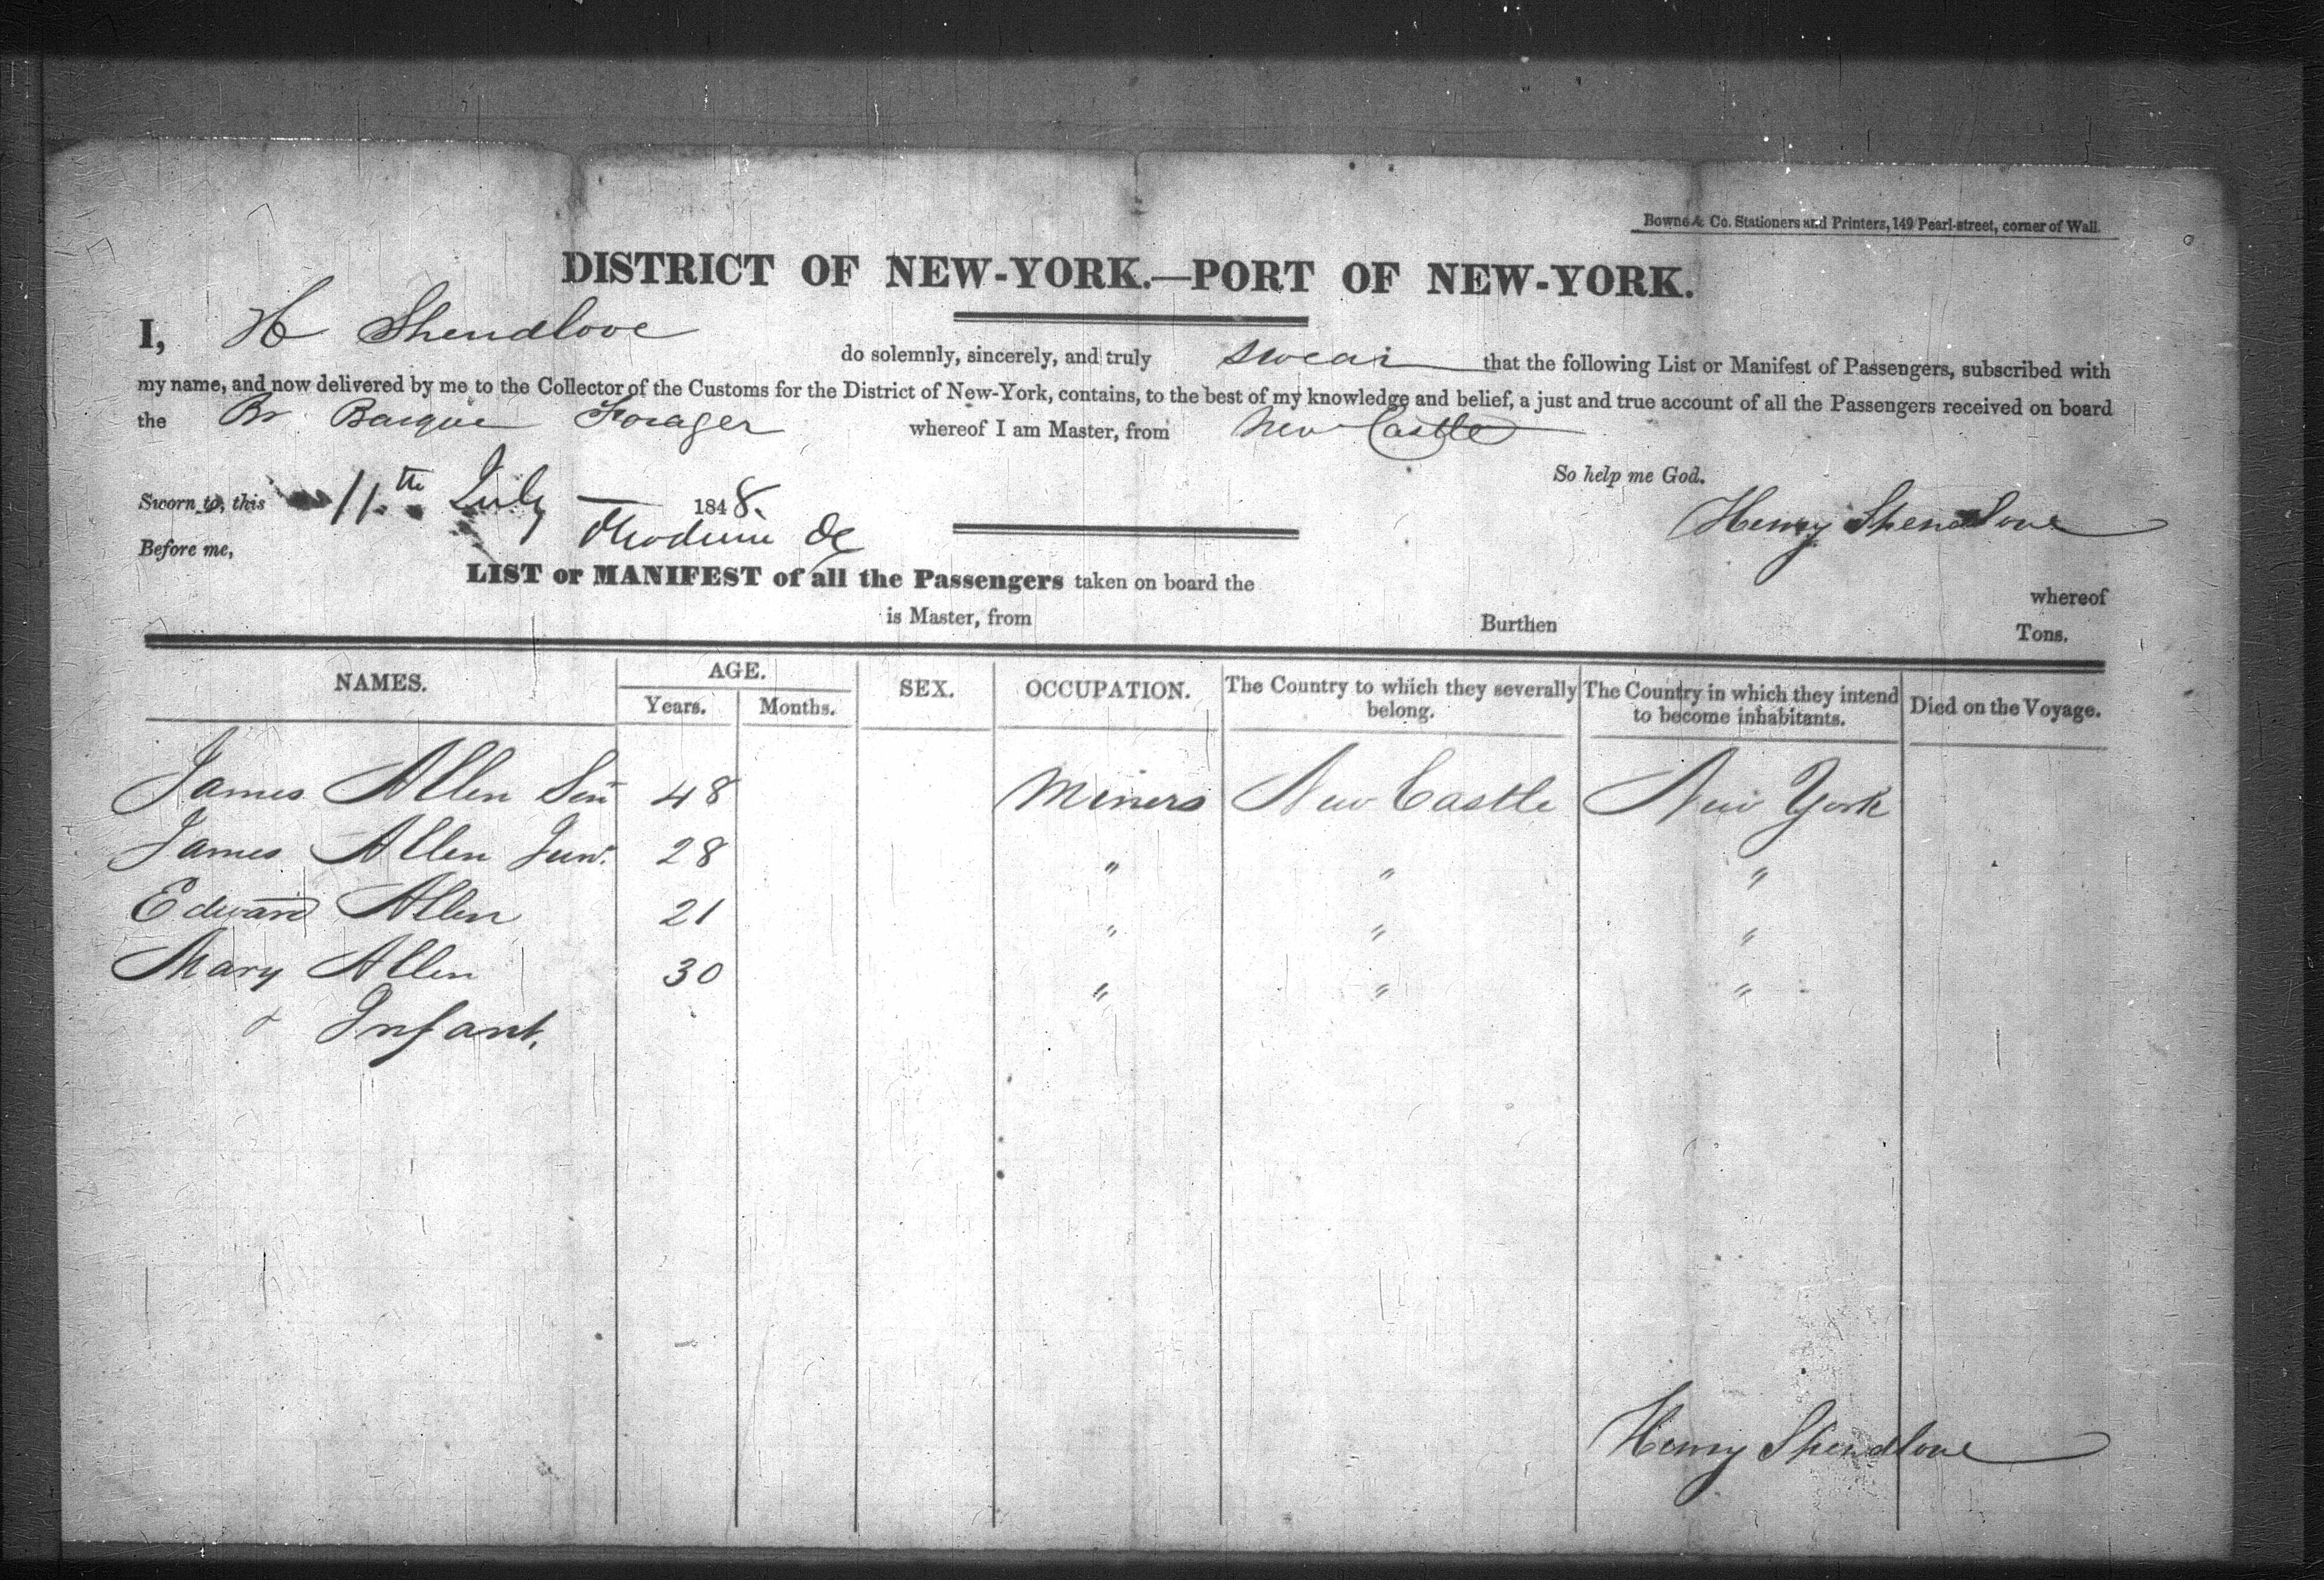 Bowne & Co. Stationers and Printers, 149 Pearl-street, corner of Wall.
DISTRICT OF NEW-YORK.—PORT OF NEW-YORK.
I, H Shendlove do solemnly, sincerely, and truly swear that the following List or Manifest of Passengers, subscribed with
my name, and now delivered by me to the Collector of the Customs for the District of New-York, contains, to the best of my knowledge and belief, a just and true account of all the Passengers received on board
the Br Barque Forager whereof I am Master, from New Castle
So help me God.
Sworn to, this 11th July 1848.
Henry Shendlove
Before me,
LIST or MANIFEST of all the Passengers taken on board the whereof
is Master, from Burthen Tons.
NAMES. AGE. Years. Months. SEX. OCCUPATION. The Country to which they severally belong. The Country in which they intend to become inhabitants. Died on the Voyage.
James Allen Senr 48 Miners New Castle New York
James Allen Junr. 28 " " "
Edward Allen 21 " " "
Mary Allen 30 " " "
& Infant.
Henry Shendlove